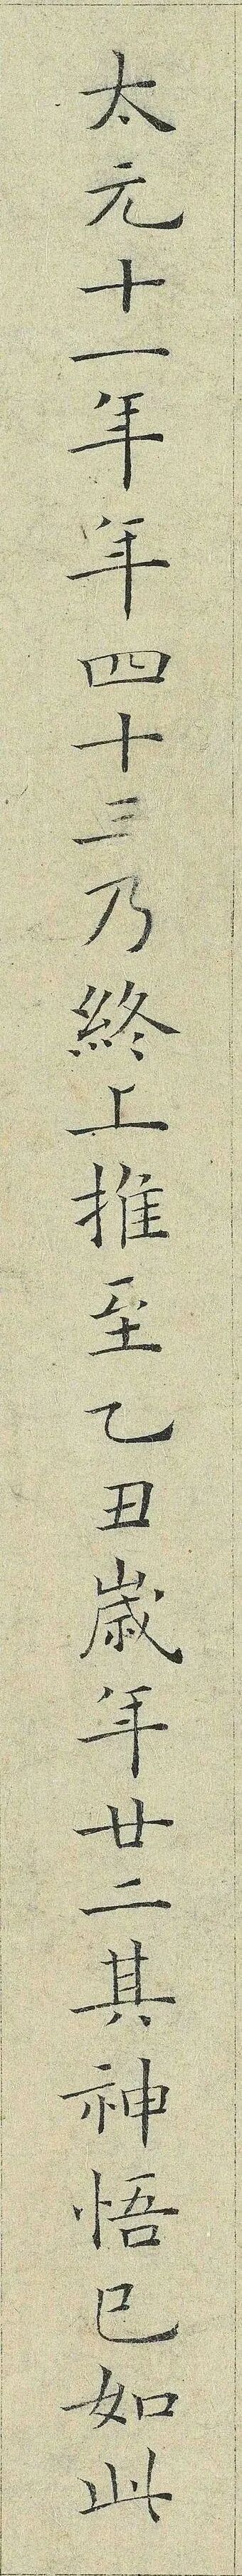 太元十一年年四十三乃終上推至乙丑歲年廿二其神悟已如此